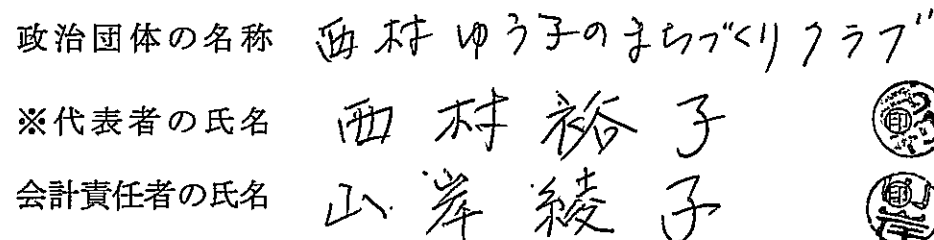 政治団体の名称 西村ゆう子のまちづくりクラブ
※代表者の氏名 西村裕子 印
会計責任者の氏名 山岸綾子 印